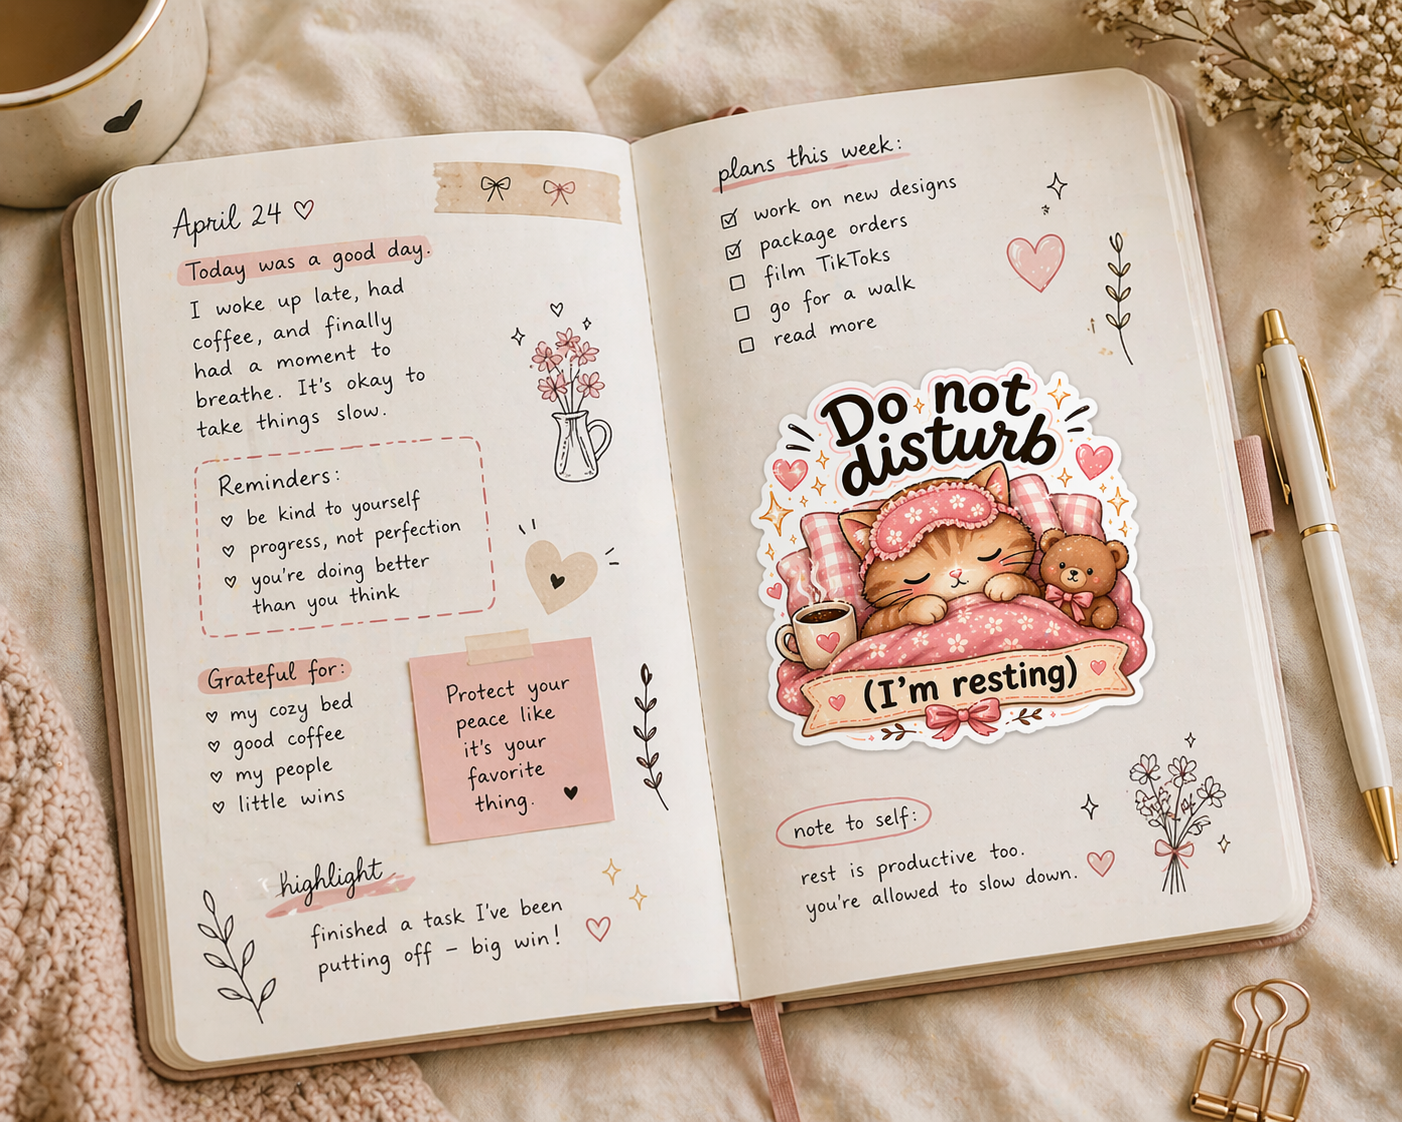 April 24
Today was a good day.
I woke up late, had
coffee, and finally
had a moment to
breathe. It's okay to
take things slow.
Reminders:
be kind to yourself
progress, not perfection
you're doing better
than you think
Grateful for:
my cozy bed
good coffee
my people
little wins
Protect your
peace like
it's your
favorite
thing.
highlight
finished a task I've been
putting off – big win!
plans this week:
work on new designs
package orders
film TikToks
go for a walk
read more
Do not
disturb
(I'm resting)
note to self:
rest is productive too.
you're allowed to slow down.